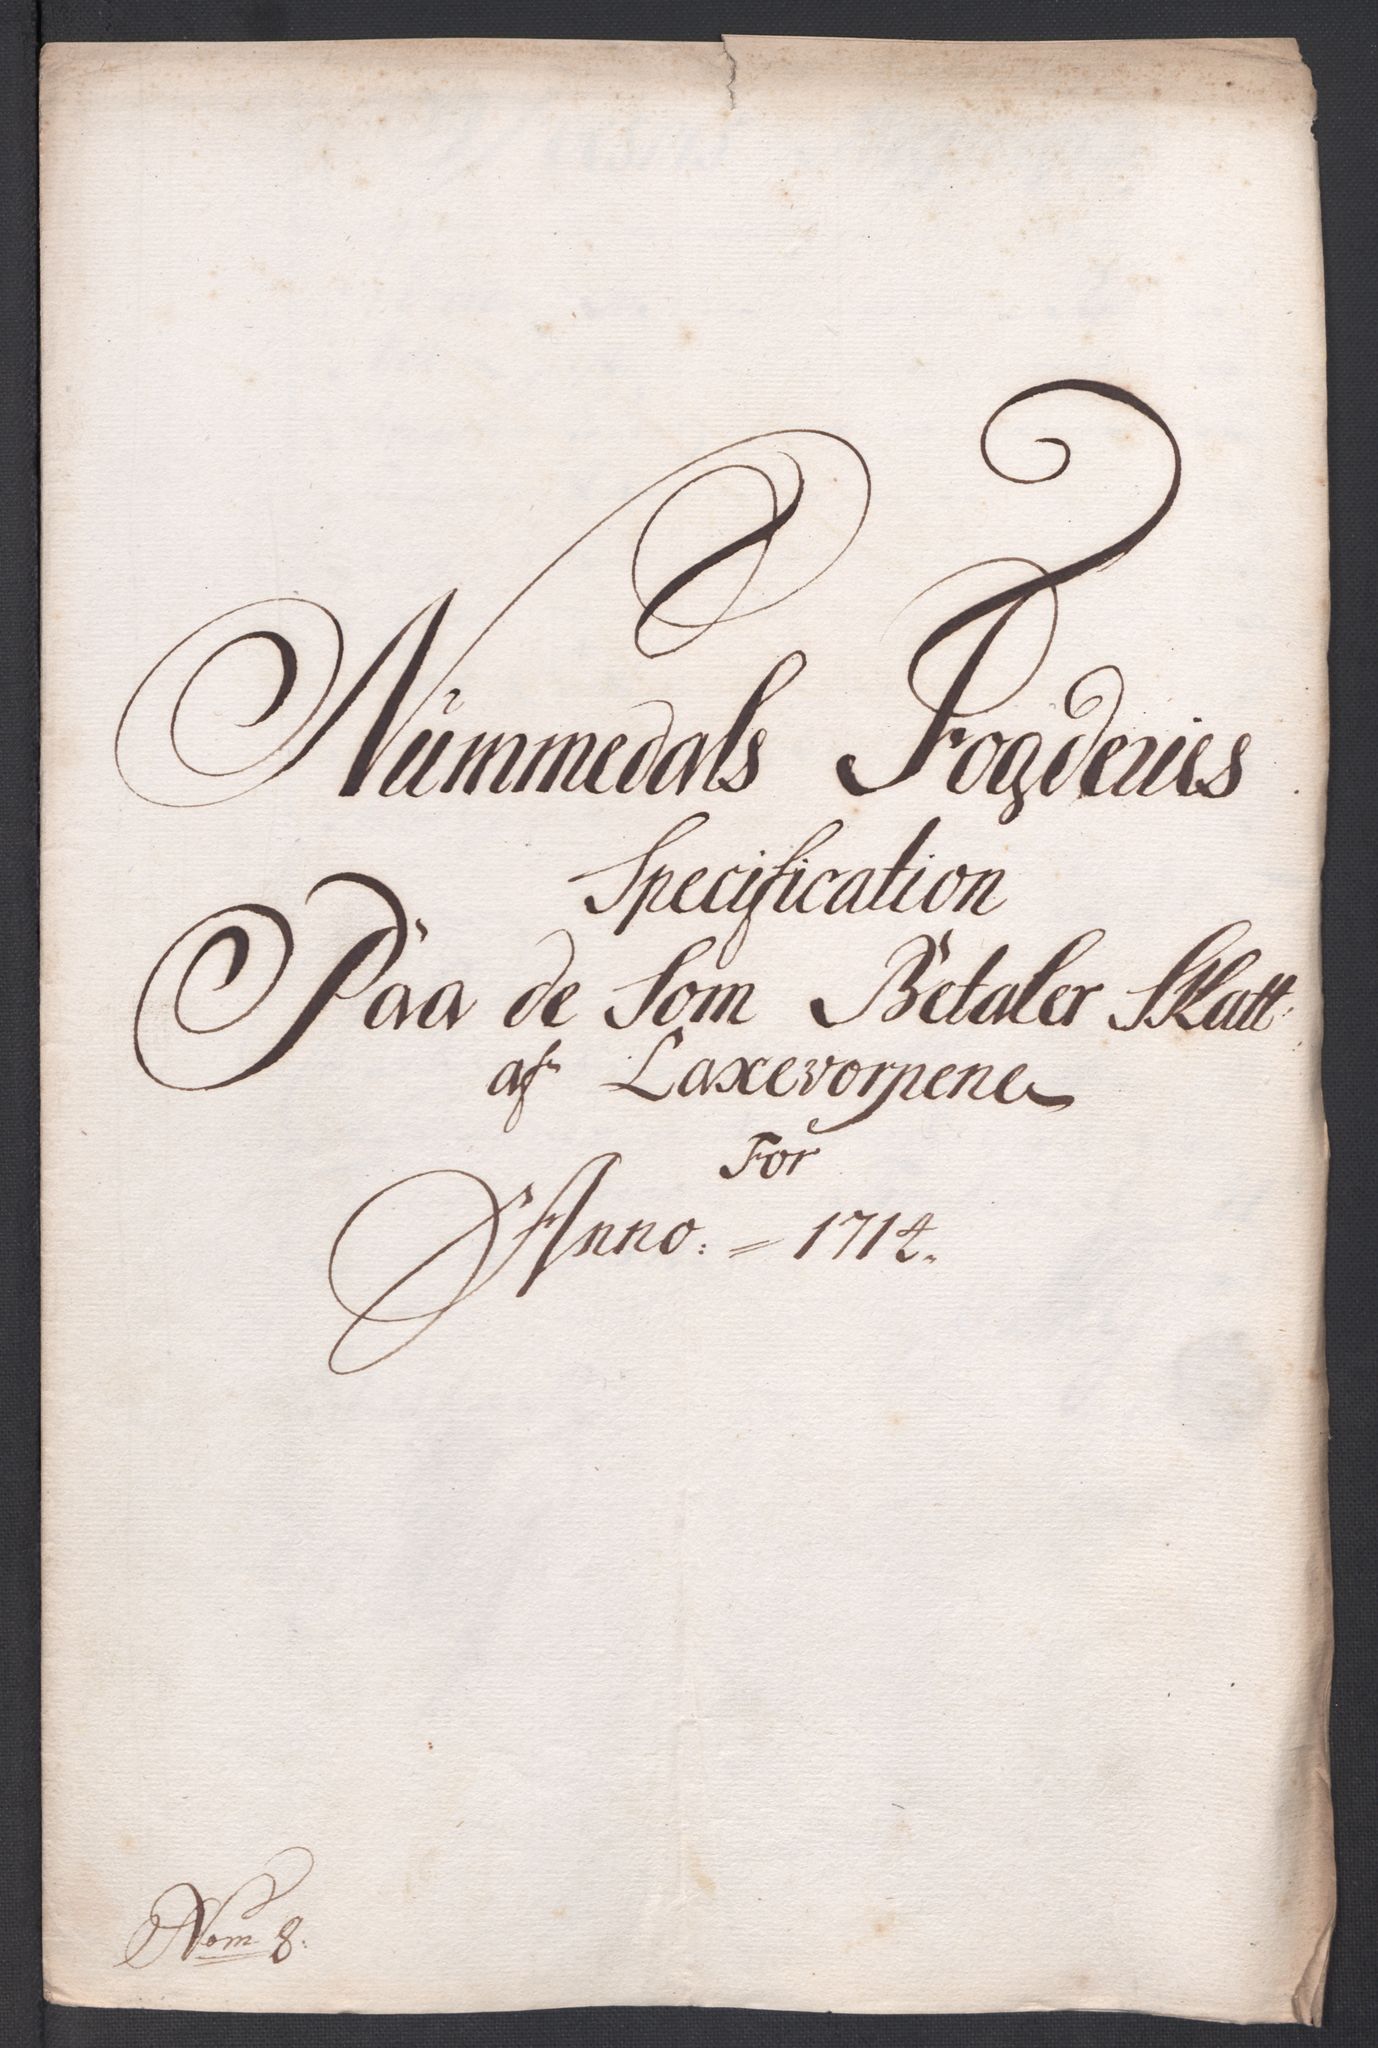 Nummedals Fogderies
Specification
Paa de som Betaler Skatt
af Laxevorpene
For
Anno: = 1714.
Nom 8.